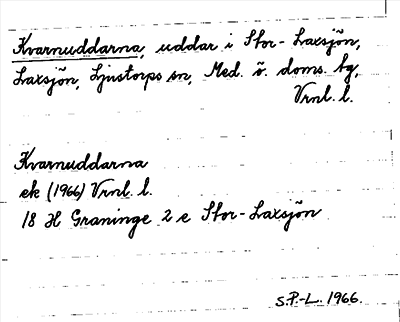 Kvarnuddarna, uddar i Stor-Laxsjön,
Laxsjön, Ljustorps sn, Med. ö. doms. tg,
Vrnl. l.
Kvarnuddarna
ek (1966) Vrnl. l.
18 H Graninge 2 e Stor-Laxsjön
S.P.-L. 1966.